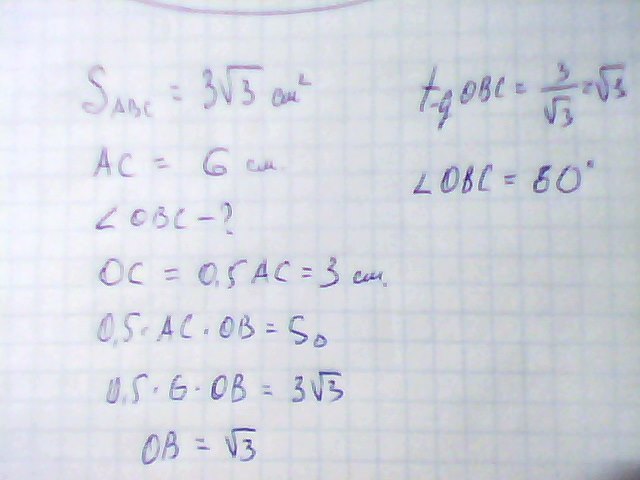 S_ABC = 3√3 см²
AC = 6 см
∠OBC - ?
OC = 0,5 AC = 3 см.
0,5 · AC · OB = S₀
0,5 · 6 · OB = 3√3
OB = √3
tg OBC = 3/√3 = √3
∠OBC = 60°